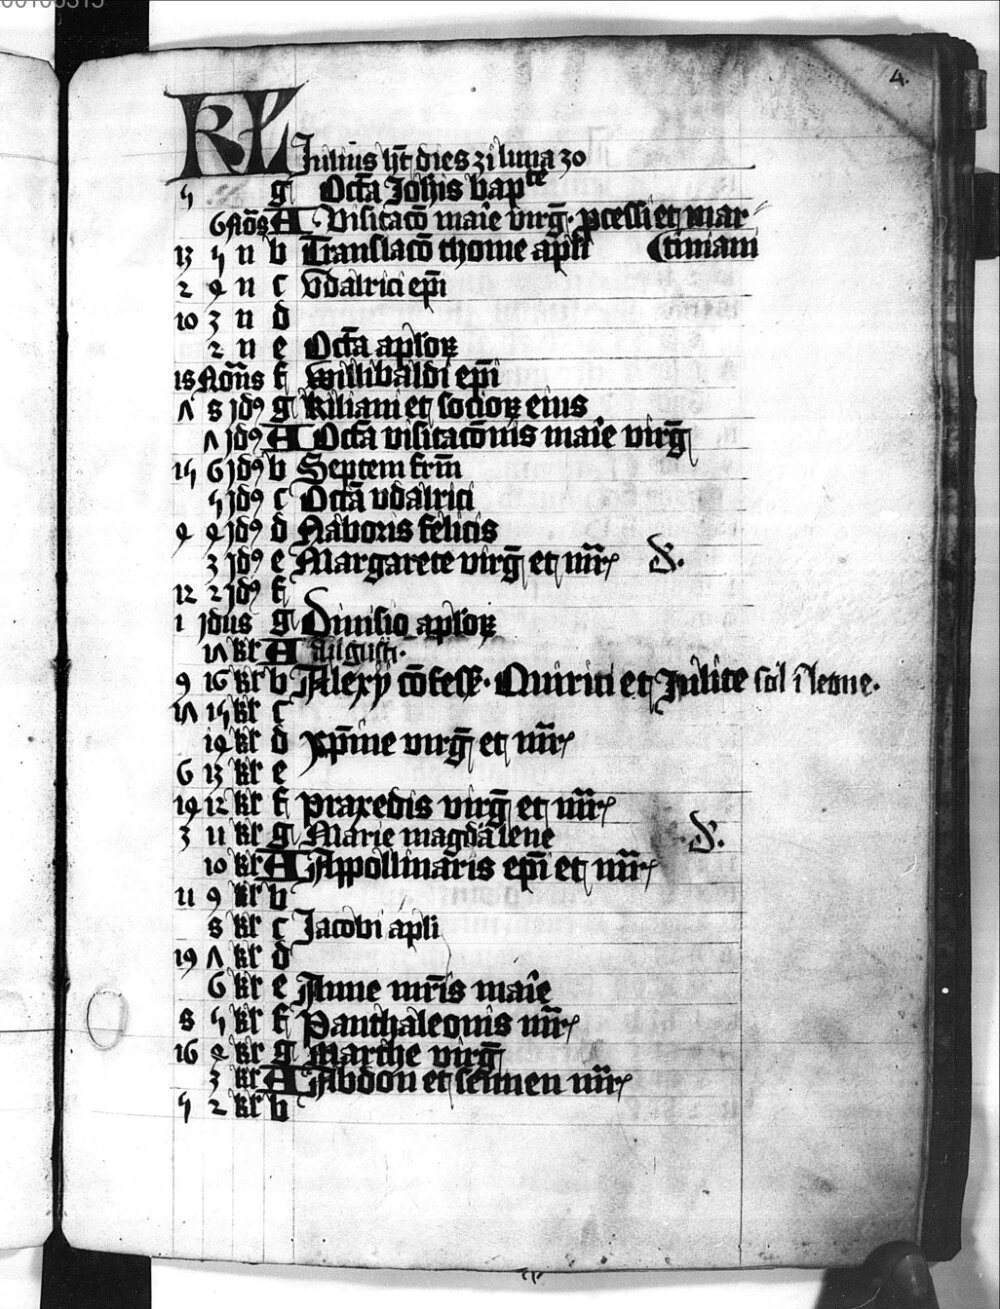 4.
KL Julius ht dies 31 luna 30
5 g Octa Johis bapte
6 nōs A Visitacō maie virg. pcessi et mar
13 5 n b Translacō thome apli (tiniani
2 4 n c Vdalrici epi
10 3 n d
2 n e Octa aplorꝝ
18 Nonis f Willibaldi epi
7 8 jdꝰ g Kiliani et sociorꝝ eius
7 jdꝰ A Octa visitacōnis maie virg
15 6 jdꝰ b Septem frm
5 jdꝰ c Octa vdalrici
4 4 jdꝰ d Naboris felicis
3 jdꝰ e Margarete virg et mr
12 2 jdꝰ f
1 jdus g Diuisio aplorꝝ
17 kl A augusti.
9 16 kl b Alexy cōfess. Quirici et Julite sol i leone.
17 15 kl c
14 kl d xpine virg et mr
6 13 kl e
14 12 kl f praxedis virg et mr
3 11 kl g Marie magdalene
10 kl A Appollinaris epi et mr
11 9 kl b
8 kl c Jacobi apli
19 7 kl d
6 kl e Anne mris maie
8 5 kl f Panthaleonis mr
16 4 kl g Marthe virg
3 kl A Abdon et sennen mr
5 2 kl b